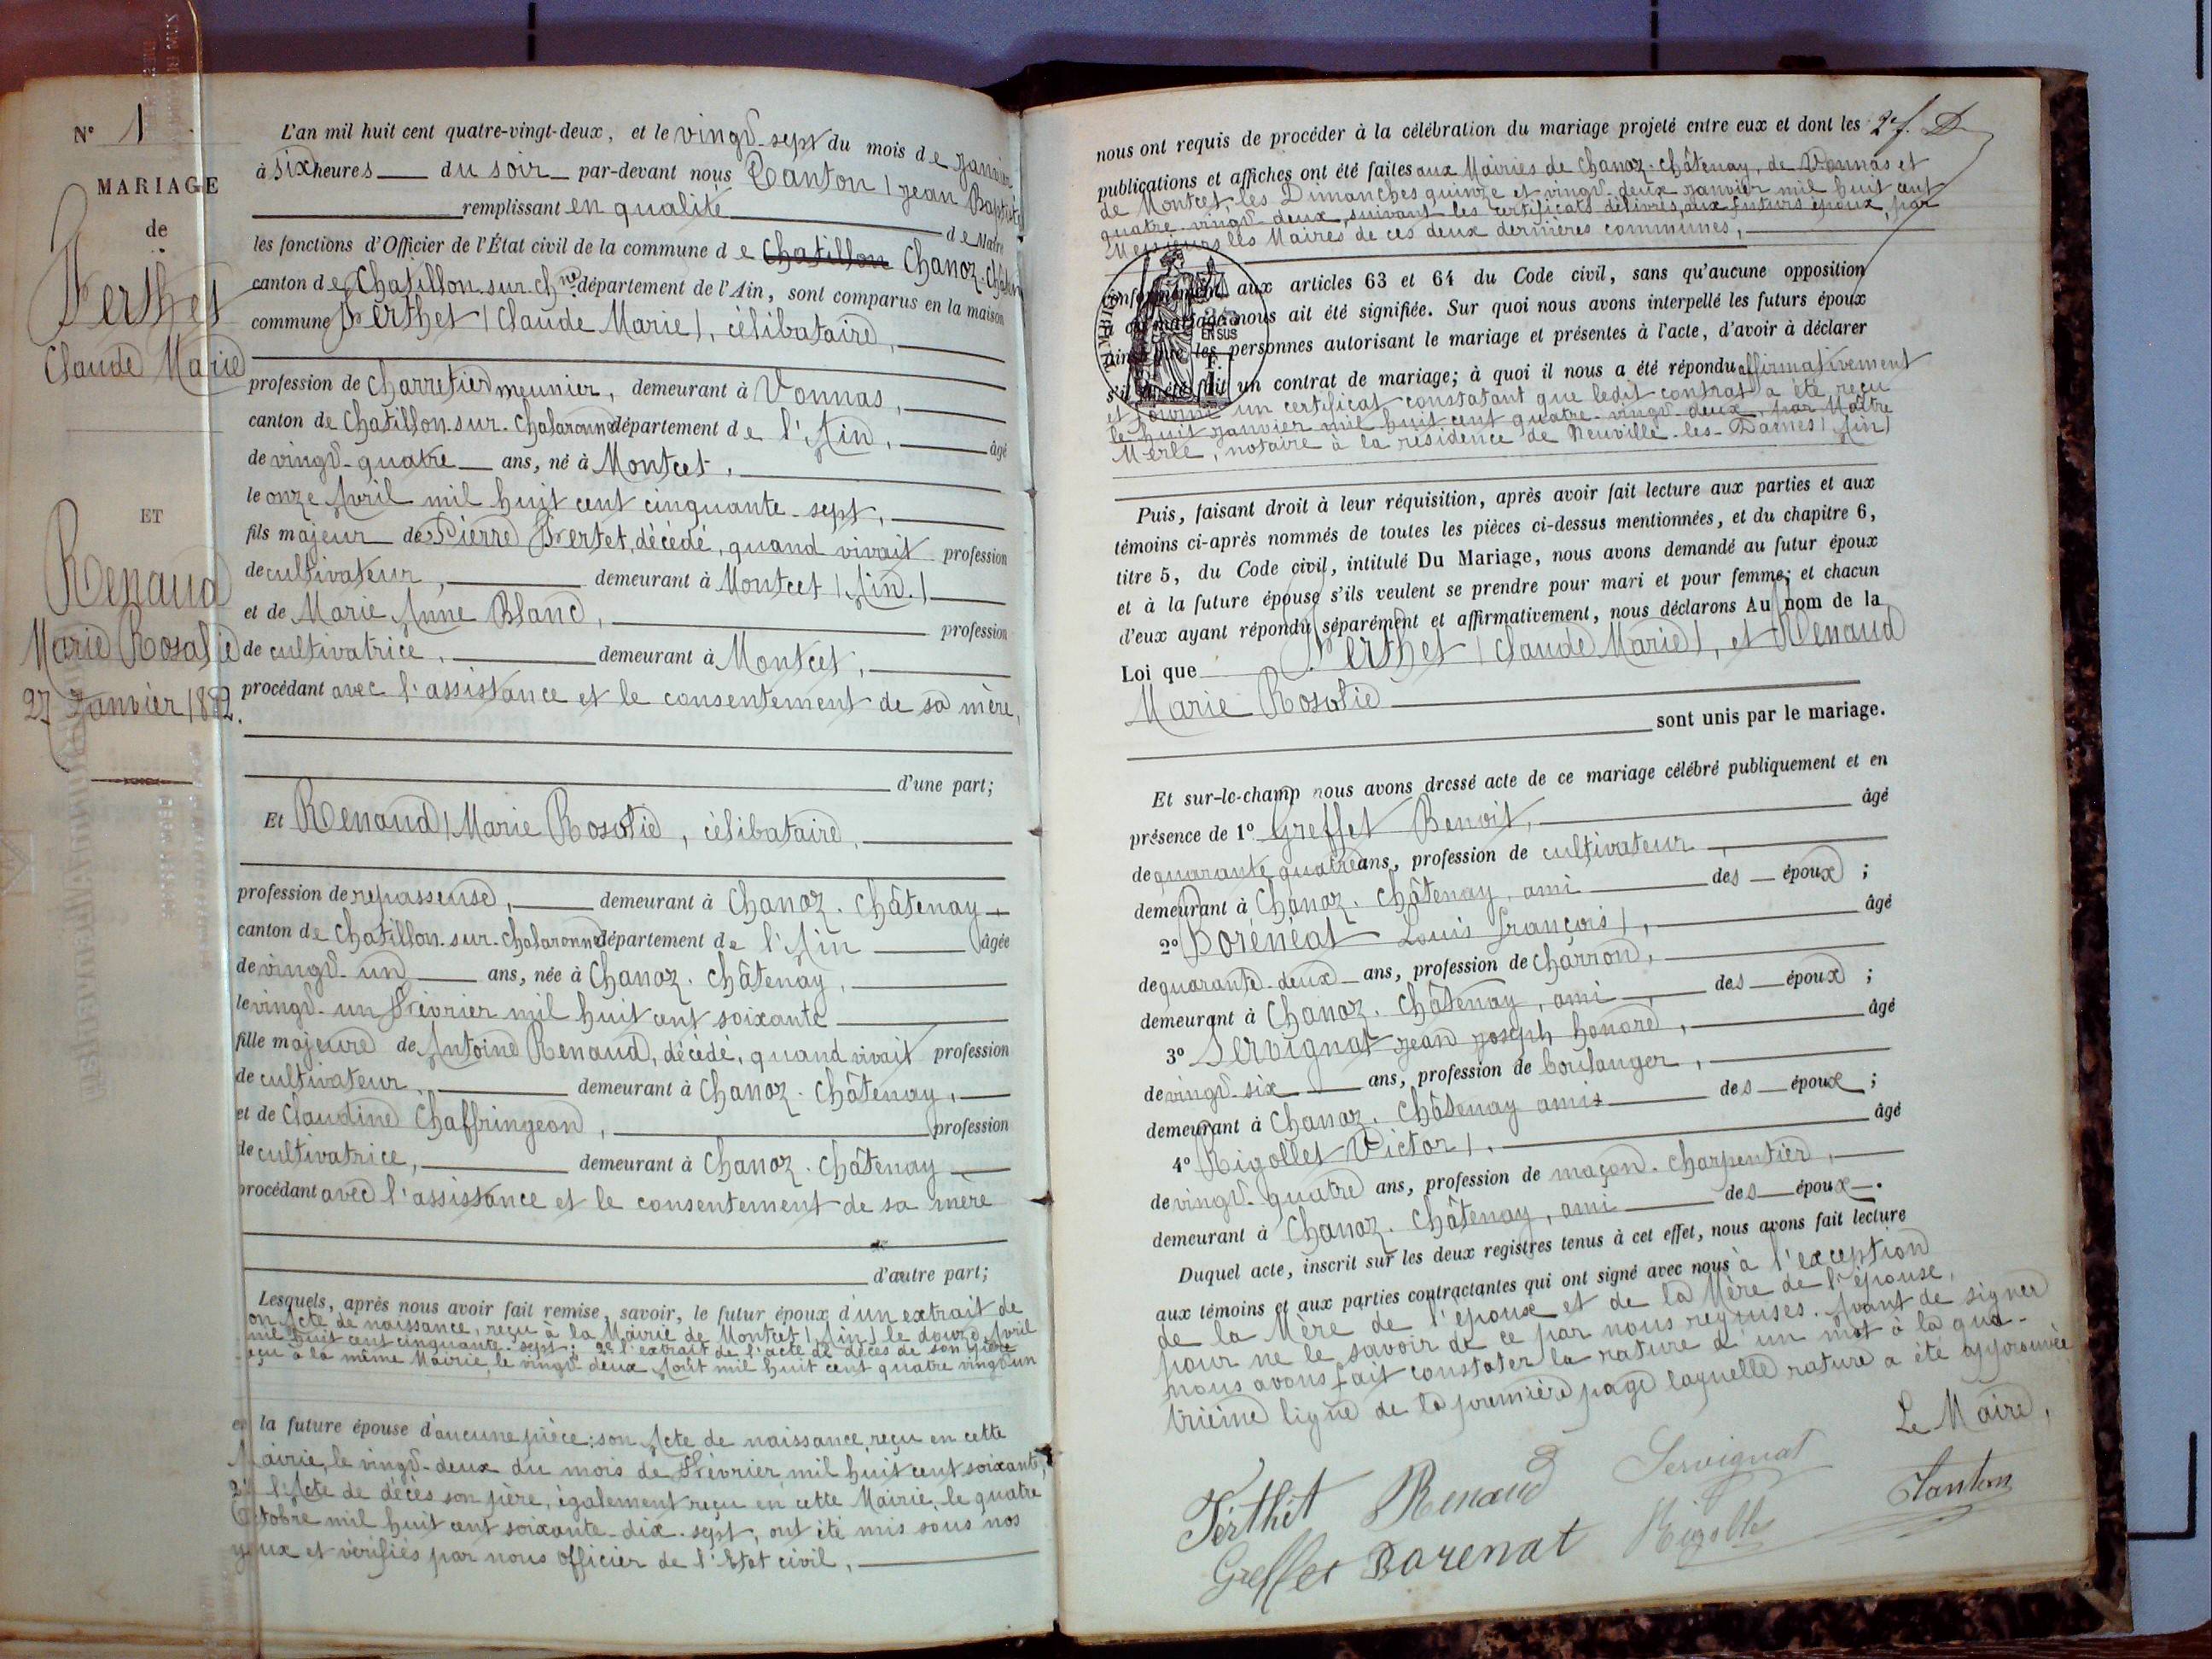 N° 1
MARIAGE
de
Ferthet
Claude Marie
ET
Renaud
Marie Rosalie
27 Janvier 1882.
L'an mil huit cent quatre-vingt-deux, et le vingt-sept du mois de Janvier
à six heures du soir par-devant nous Tanton (Jean Baptiste
remplissant en qualité de Maire
les fonctions d'Officier de l'État civil de la commune de Chatillon Chanoz-Châtenay
canton de Chatillon-sur-Chne département de l'Ain, sont comparus en la maison
commune Ferthet (Claude Marie), célibataire,
profession de Charretier meunier, demeurant à Vonnas,
canton de Chatillon-sur-Chalaronne département de l'Ain, âgé
de vingt-quatre ans, né à Montcet,
le onze Avril mil huit cent cinquante-sept,
fils majeur de Pierre Fertet, décédé, quand vivait profession
de cultivateur, demeurant à Montcet (Ain.)
et de Marie Anne Blanc, profession
de cultivatrice, demeurant à Montcet,
procédant avec l'assistance et le consentement de sa mère,
d'une part;
Et Renaud (Marie Rosalie, célibataire,
profession de repasseuse, demeurant à Chanoz-Châtenay
canton de Chatillon-sur-Chalaronne département de l'Ain âgée
de vingt-un ans, née à Chanoz-Châtenay,
le vingt-un Février mil huit cent soixante
fille majeure de Antoine Renaud, décédé, quand vivait profession
de cultivateur, demeurant à Chanoz-Châtenay,
et de Claudine Chaffringeon, profession
de cultivatrice, demeurant à Chanoz-Châtenay
procédant avec l'assistance et le consentement de sa mère
d'autre part;
Lesquels, après nous avoir fait remise, savoir, le futur époux d'un extrait de
son Acte de naissance, reçu à la Mairie de Montcet (Ain) le douze Avril
mil huit cent cinquante-sept; 2° l'extrait de l'acte de décès de son père
reçu à la même Mairie, le vingt-deux Août mil huit cent quatre vingt un
et la future épouse d'aucune pièce: son Acte de naissance, reçu en cette
Mairie, le vingt-deux du mois de Février mil huit cent soixante,
2° l'Acte de décès son père, également reçu en cette Mairie, le quatre
Octobre mil huit cent soixante-dix-sept, ont été mis sous nos
yeux et vérifiés par nous Officier de l'Etat civil,
nous ont requis de procéder à la célébration du mariage projeté entre eux et dont les 2 f. D
publications et affiches ont été faites aux Mairies de Chanoz-Châtenay, de Vonnas et
de Montcet, les Dimanches quinze et vingt-deux janvier mil huit cent
quatre-vingt-deux, suivant les certificats délivrés, aux futurs époux, par
Messieurs les Maires de ces deux dernières communes,
conformément aux articles 63 et 64 du Code civil, sans qu'aucune opposition
à ce mariage nous ait été signifiée. Sur quoi nous avons interpellé les futurs époux
EN SUS
ainsi que les personnes autorisant le mariage et présentes à l'acte, d'avoir à déclarer
s'il a été fait un contrat de mariage; à quoi il nous a été répondu affirmativement
et fourni un certificat constatant que ledit contrat a été reçu
le huit janvier mil huit cent quatre-vingt-deux, par Maître
Merle, notaire à la résidence de Neuville-les-Dames (Ain)
Puis, faisant droit à leur réquisition, après avoir fait lecture aux parties et aux
témoins ci-après nommés de toutes les pièces ci-dessus mentionnées, et du chapitre 6,
titre 5, du Code civil, intitulé Du Mariage, nous avons demandé au futur époux
et à la future épouse s'ils veulent se prendre pour mari et pour femme; et chacun
d'eux ayant répondu séparément et affirmativement, nous déclarons Au nom de la
Loi que Ferthet (Claude Marie), et Renaud
Marie Rosalie
sont unis par le mariage.
Et sur-le-champ nous avons dressé acte de ce mariage célébré publiquement et en
présence de 1° Greffet Benoit, âgé
de quarante quatre ans, profession de cultivateur,
demeurant à Chanoz-Châtenay, ami des époux;
2° Borénéat Louis François), âgé
de quarante-deux ans, profession de Charron,
demeurant à Chanoz-Châtenay, ami, des époux;
3° Servignat Jean Joseph honoré, âgé
de vingt-six ans, profession de boulanger,
demeurant à Chanoz-Châtenay amis des époux;
4° Rigollet Victor), âgé
de vingt-quatre ans, profession de maçon-charpentier,
demeurant à Chanoz-Châtenay, ami des époux.
Duquel acte, inscrit sur les deux registres tenus à cet effet, nous avons fait lecture
aux témoins et aux parties contractantes qui ont signé avec nous à l'exception
de la Mère de l'époux et de la Mère de l'épouse,
pour ne le savoir de ce par nous requises. Avant de signer
nous avons fait constater la rature d'un mot à la qua-
trième ligne de la première page laquelle rature a été approuvée
Le Maire,
Ferthet Renaud Servignat
Tanton
Greffet Borenat Rigollet